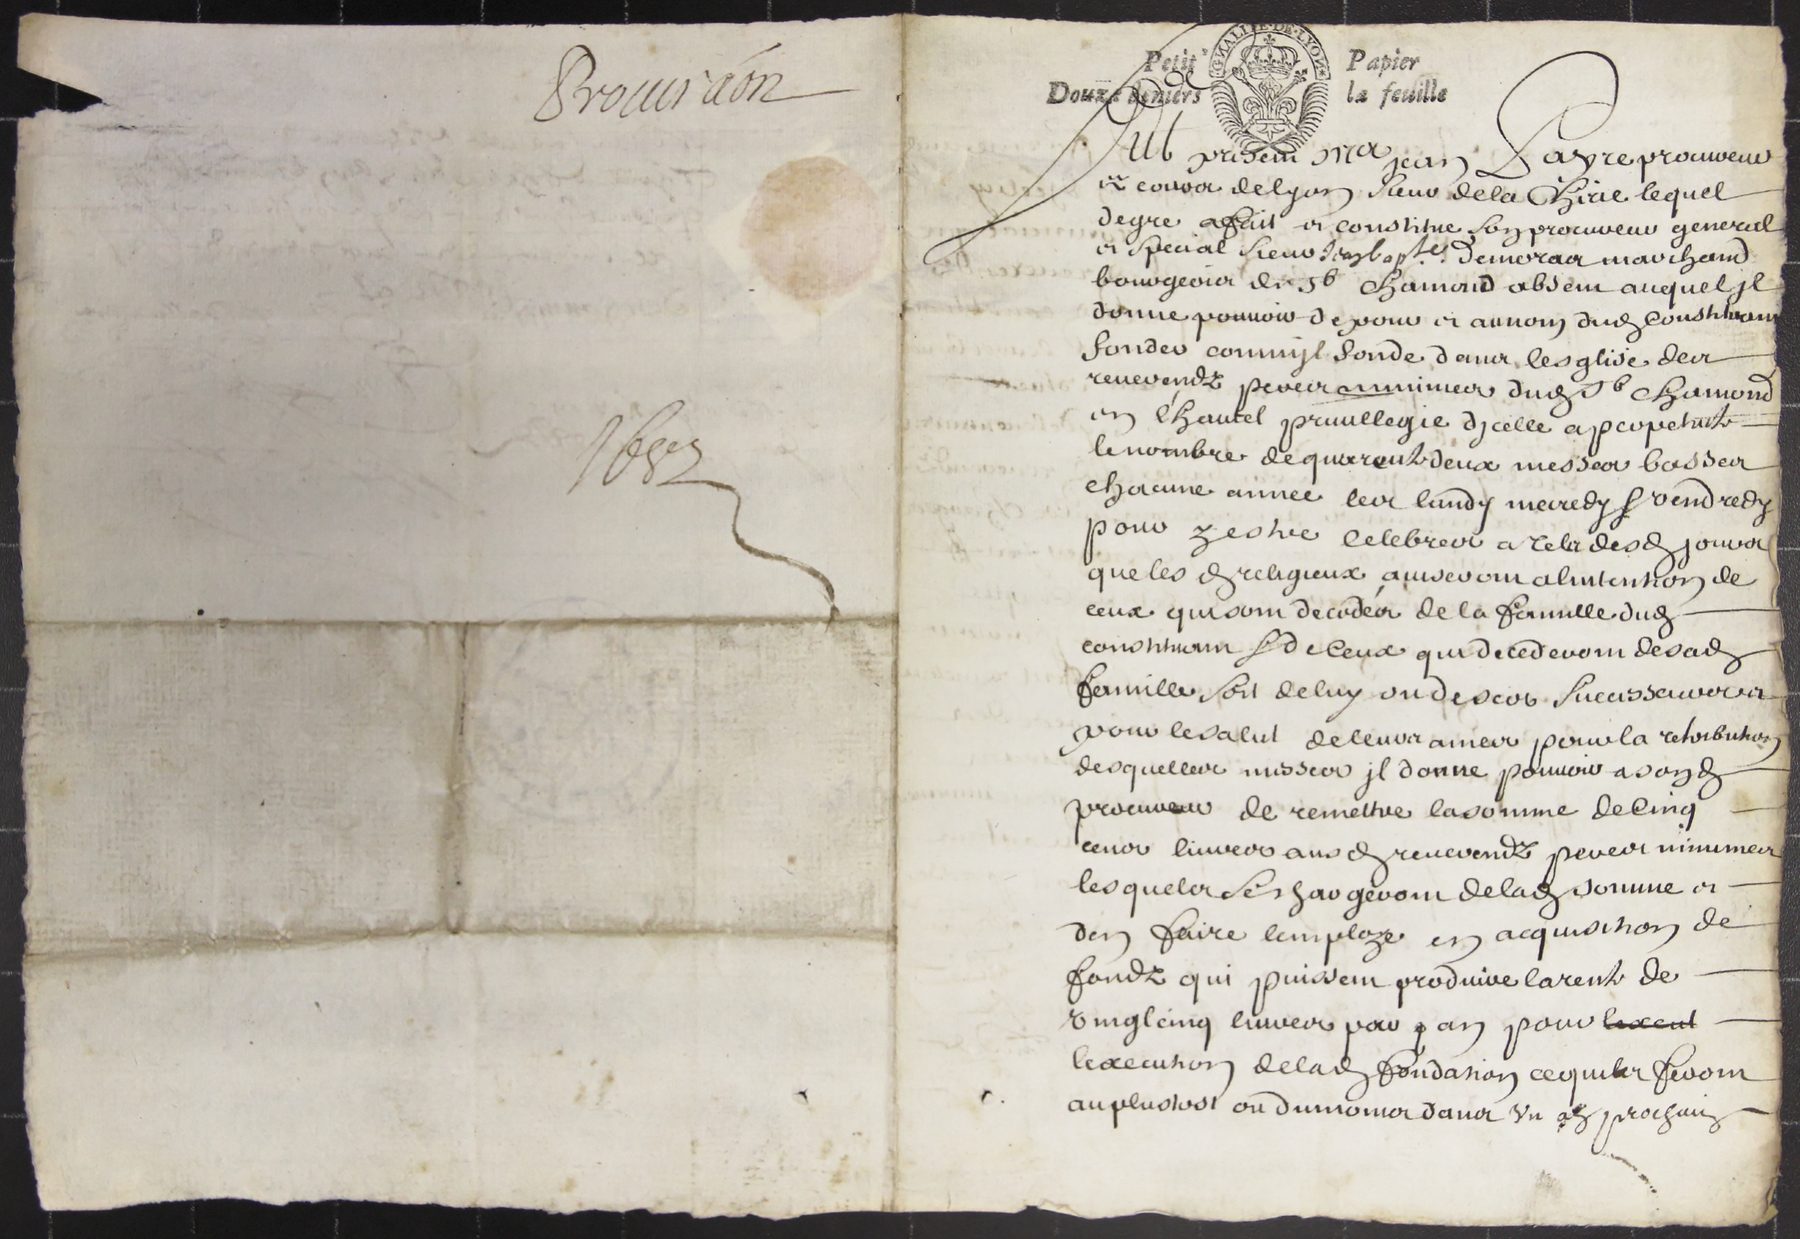 Procuraon
1682
GNALITE DE LYON
Petit Papier
Douze deniers la feuille
Fut present Mre Jean Payre procureur
ez cours de lyon sieur de la Chirie lequel
de gre a fait et constitue son procureur general
et special sieur Jean bapte demeraa marchand
bourgeois de St Chamond absent auquel jl
donne pouvoir de pour et au nom dud constituant
fonder comm jl fonde dans lesglise des
reverendz peres minimes dud St Chamond
en lhautel privillegie djcelle a perpetuite
le nombre de quarente deux messes basses
chacune annee les lundy mecredy & vendredy
pour y estre celebrees a tels desd jours
que les d religieux aviseront a lintention de
ceux qui sont decedes de la famille dud
constituant & de ceux qui decederont de sad
famille soit de luy ou de ses sucesseurs et
pour le salut de leurs ames pour la retribution
desquelles messes jl donne pouvoir a sond
procureur de remettre la somme de cinq
cens livres aus d reverendz peres minimes
lesquels se chargeront de lad somme et
den faire lemploye en acquisition de
fondz qui puissent produire la rente de
vingt cinq livres par an pour lexecut
lexecution de lad fondation ce quils feront
au plustost ou du moins dans un an prochain